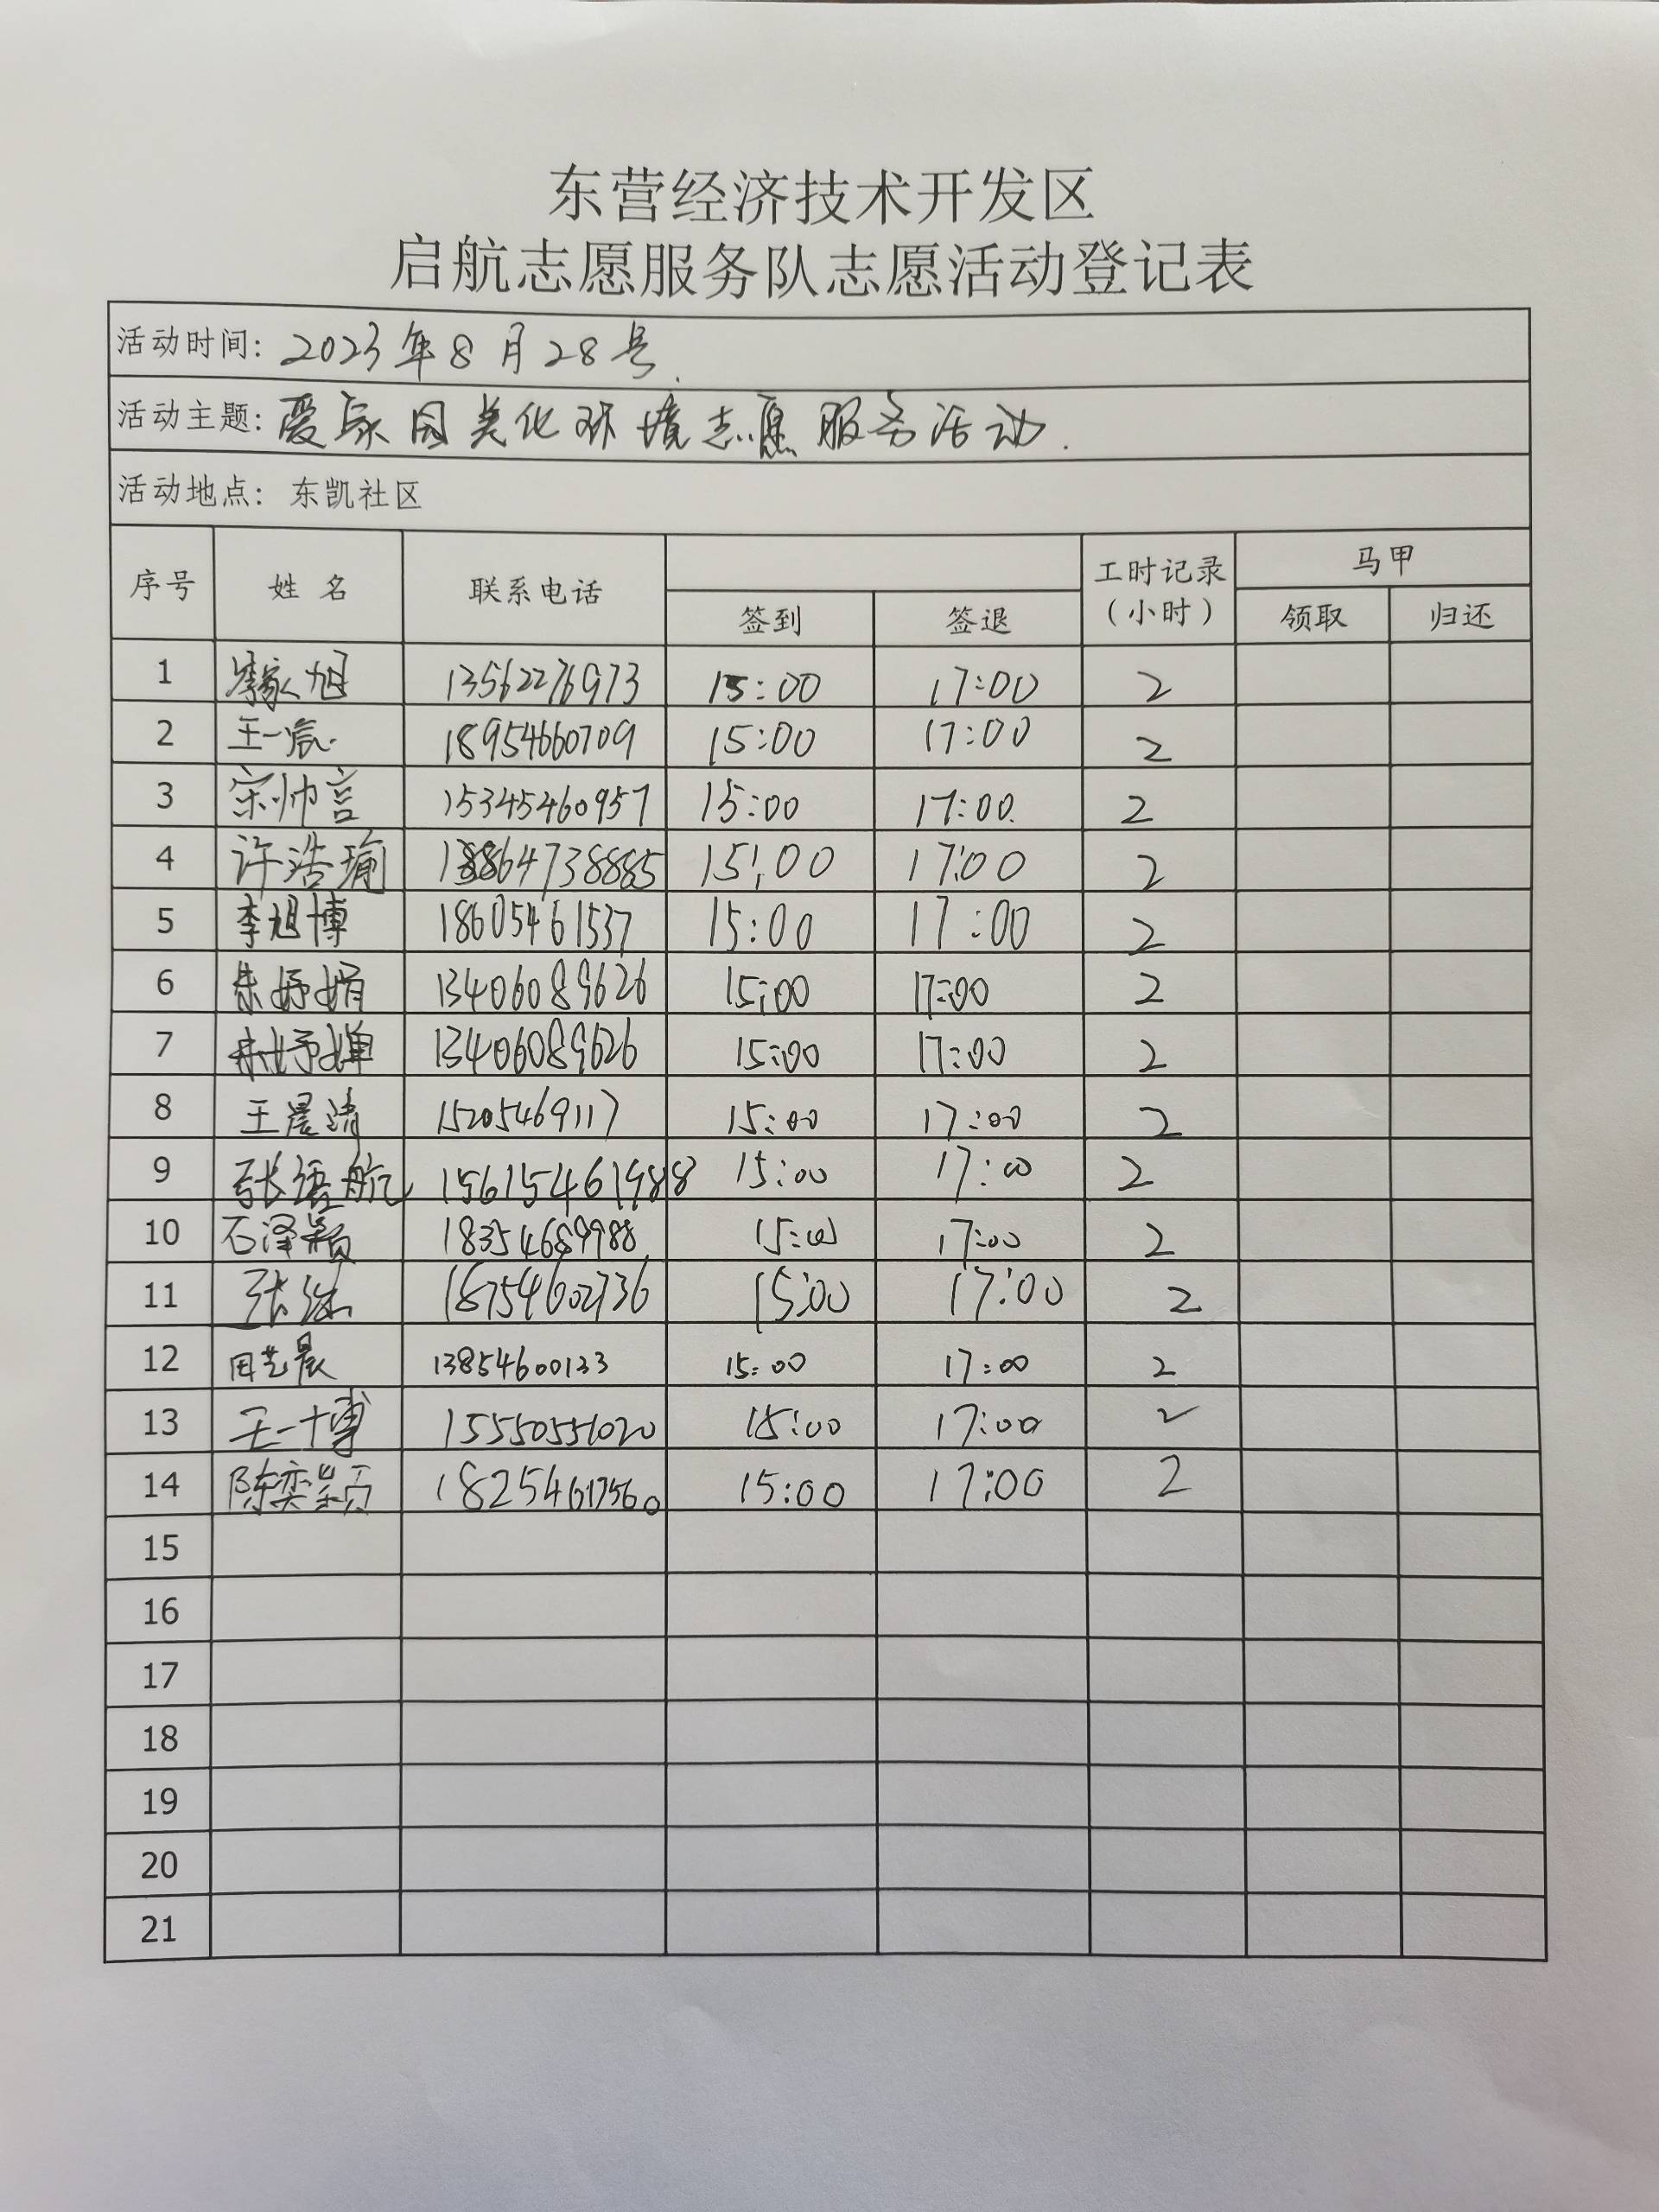 东营经济技术开发区
启航志愿服务队志愿活动登记表
活动时间: 2023年8月28号.
活动主题: 爱家园美化环境志愿服务活动.
活动地点: 东凯社区
序号 姓名 联系电话 工时记录(小时) 马甲
签到 签退 领取 归还
1 李家旭 13562276973 15:00 17:00 2
2 王一宸 18954660709 15:00 17:00 2
3 宋帅言 15345460957 15:00 17:00 2
4 许浩瑜 13864738885 15:00 17:00 2
5 李旭博 18605461537 15:00 17:00 2
6 朱妤婧 13406089626 15:00 17:00 2
7 朱妤婵 13406089626 15:00 17:00 2
8 王晨清 15205469117 15:00 17:00 2
9 张语航 156154461988 15:00 17:00 2
10 石泽颖 18354689988 15:00 17:00 2
11 张 18754602736 15:00 17:00 2
12 田艺晨 13854600133 15:00 17:00 2
13 王一博 15550551020 15:00 17:00 2
14 陈奕颖 18254617560 15:00 17:00 2
15
16
17
18
19
20
21